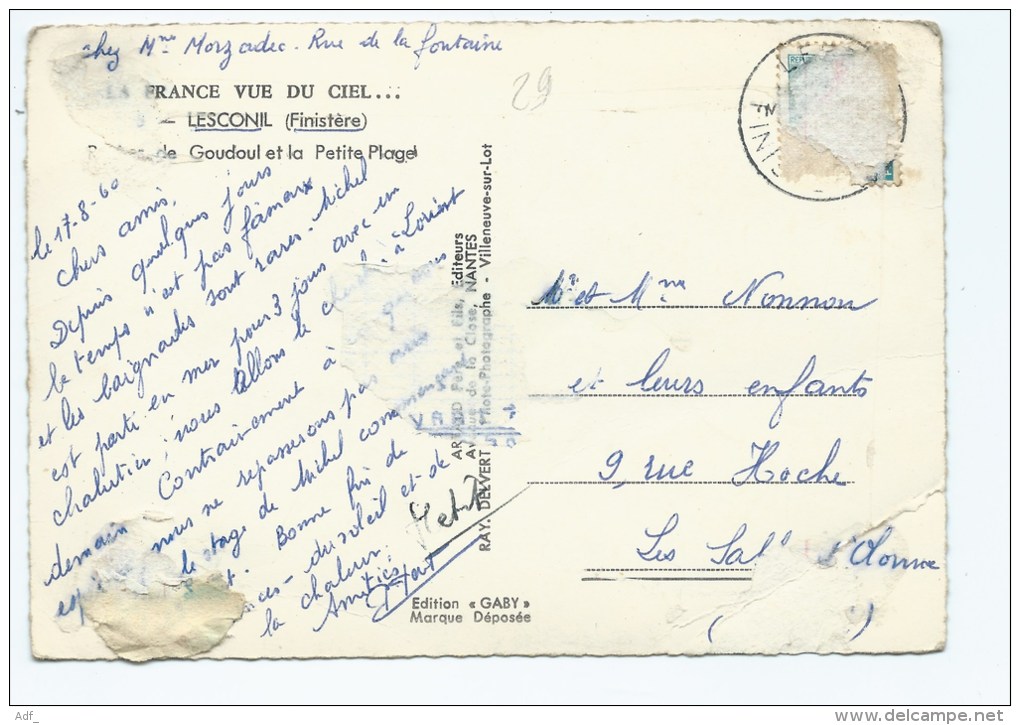 chez Mme Morzadec. Rue de la fontaine
29
LA FRANCE VUE DU CIEL...
— LESCONIL (Finistère)
de Goudoul et la Petite Plage
FINI
le 17-8-60
Chers amis,
Depuis quelques jours
le temps n'est pas fameux
et les baignades sont rares. Michel
est parti en mer pour 3 jours avec un
chalutier ; nous allons le chercher à Lorient
demain. Contrairement à que nous
nous ne repasserons pas
le stage de Michel commençant
Bonne fin de
- du soleil et de
la chaleur.
Amitiés.
ARTAUD Père et Fils, Éditeurs
de la Close, NANTES
RAY. DELVERT Photo-Photographe - Villeneuve-sur-Lot
Edition « GABY »
Marque Déposée
Mr et Mme Nonnon
et leurs enfants
9, rue Hoche
Les Sabl d'Olonne
( )
Adf_
delcampe.net